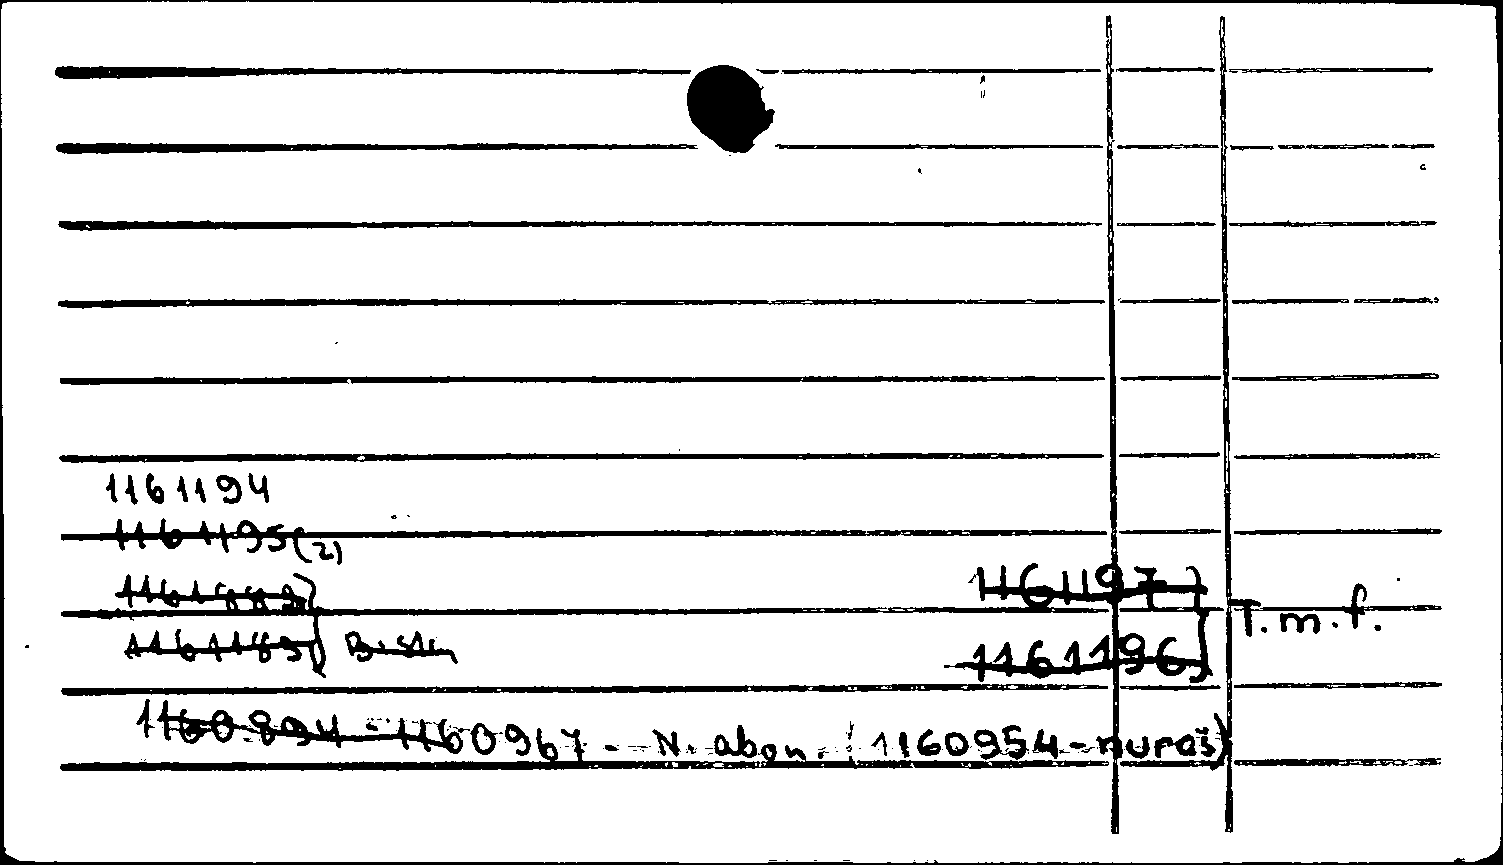 1161194
1161195 (2)
1161197
1161189
T. m. f.
1161196
1160.894 - 1160967 - N. abon. (1160954 - nuraš)